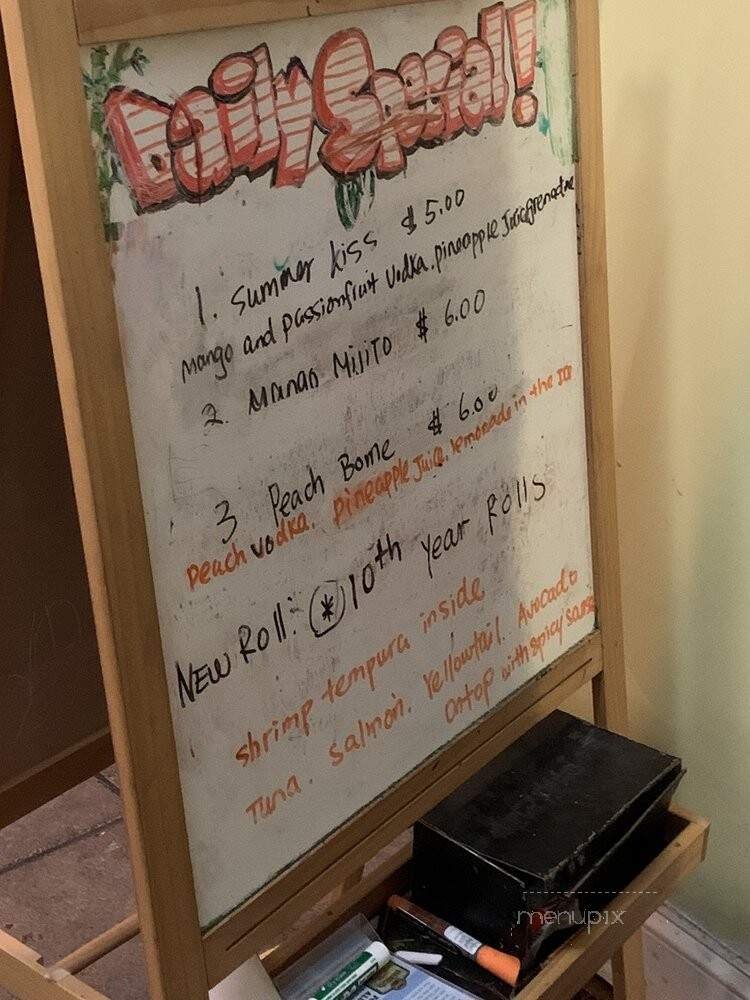 Daily Special!
1. Summer kiss $5.00
mango and passionfruit vodka. pineapple Juice
2. Manao Mijito $6.00
3 Peach Bome $6.00
Peach vodka. pineapple Juice. lemonade in the
NEW Roll: * 10th Year Rolls
shrimp tempura inside
Tuna. Salmon. Yellowtail. Avocado
ontop with spicy
menupix